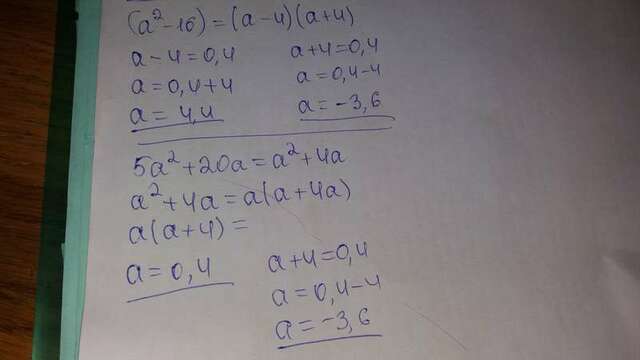 (a²-16)=(a-4)(a+4)
a-4=0,4 a+4=0,4
a=0,4+4 a=0,4-4
a=4,4 a=-3,6
5a²+20a=a²+4a
a²+4a=a(a+4a)
a(a+4)=
a=0,4 a+4=0,4
a=0,4-4
a=-3,6